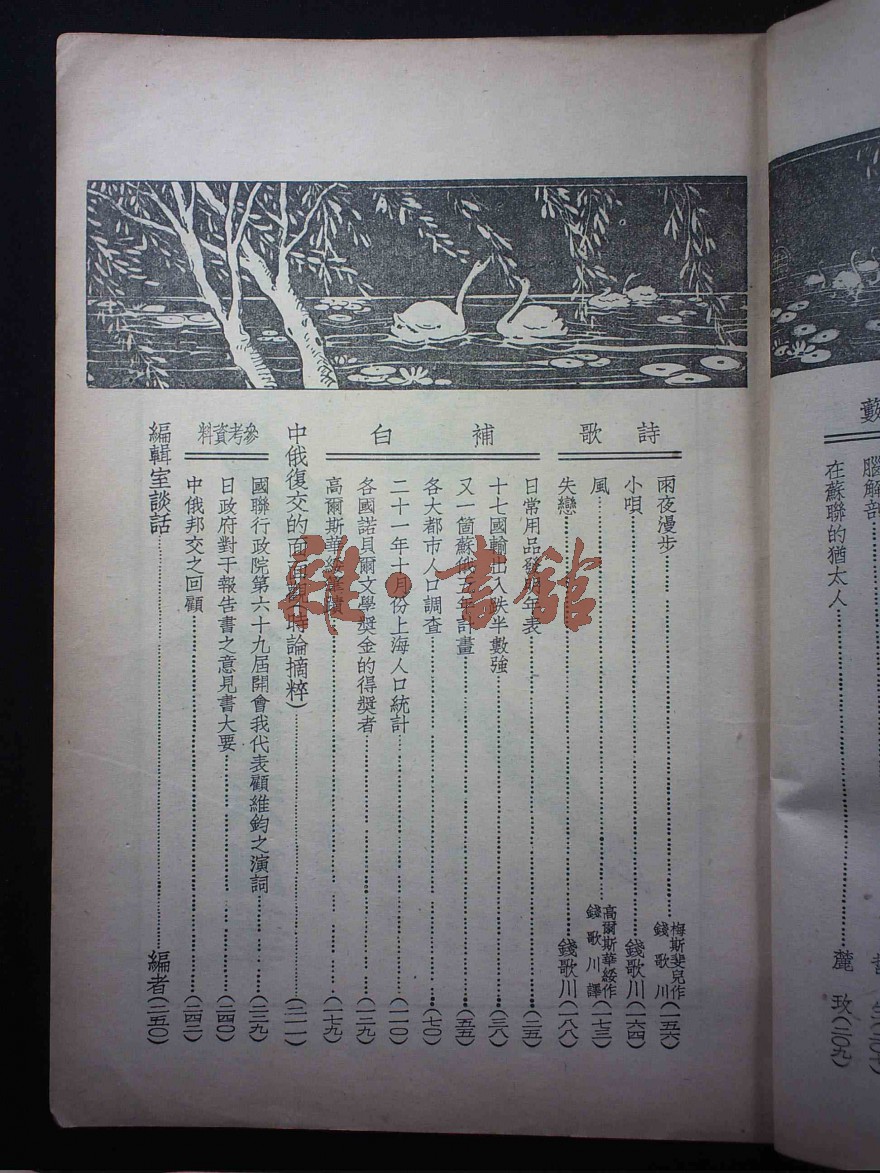 藪
腦解剖
在蘇聯的猶太人 麓玫(二〇九)
詩歌
雨夜漫步 梅斯斐兒作 錢歌川 (一五六)
小唄 錢歌川(一六四)
風 高爾斯華綏作 錢歌川譯 (一七三)
失戀 錢歌川(一八八)
補白
日常用品發明年表 (二五)
十七國輸出入跌半數強 (三八)
又一箇蘇俄五年計畫 (五五)
各大都市人口調查 (七〇)
二十一年十月份上海人口統計 (一一〇)
各國諾貝爾文學獎金的得獎者 (一二九)
高爾斯華綏 (一七九)
中俄復交的面面觀(時論摘粹) (二一一)
參考資料
國聯行政院第六十九屆開會我代表顧維鈞之演詞 (二三九)
日政府對于報告書之意見書大要 (二四〇)
中俄邦交之回顧 (二四二)
編輯室談話 編者(二五〇)
雜·書館